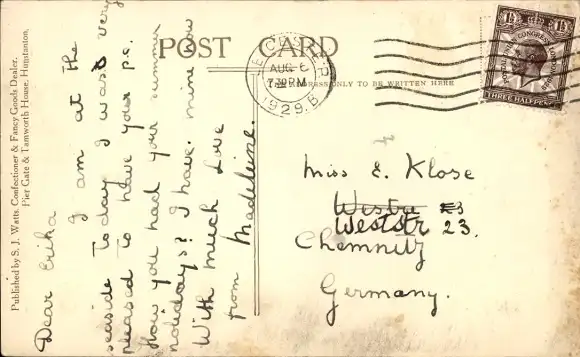 POST CARD
THE ADDRESS ONLY TO BE WRITTEN HERE
Published by S. J. Watts, Confectioner & Fancy Goods Dealer,
Pier Gate & Tamworth House, Hunstanton.
Dear Erika
I am at the
seaside today I was very
pleased to have your p.c.
How you had your summer
holidays? I have mine now
With much love
from Madeleine.
AUG 6
7.30PM
1929.B
1½ 1½
POSTAL UNION CONGRESS LONDON 1929
THREE HALFPENCE
Miss E. Klose
Westr 23
Weststr 23.
Chemnitz
Germany.